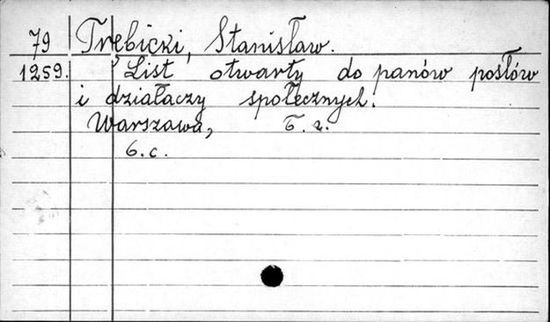 79 Trębicki, Stanisław.
1259. List otwarty do panów posłów
i działaczy społecznych.
Warszawa, Б. г.
6. с.